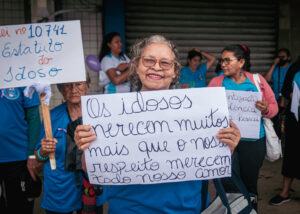 Lei no 10741
Estatuto
do
Idoso
Os idosos
merecem muitos
mais que o nosso
respeito merecem
todo nosso amor